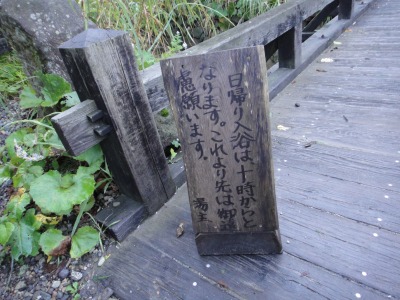 日帰り入浴は、十時からと
なります。これより先は御遠
慮願います。
湯主